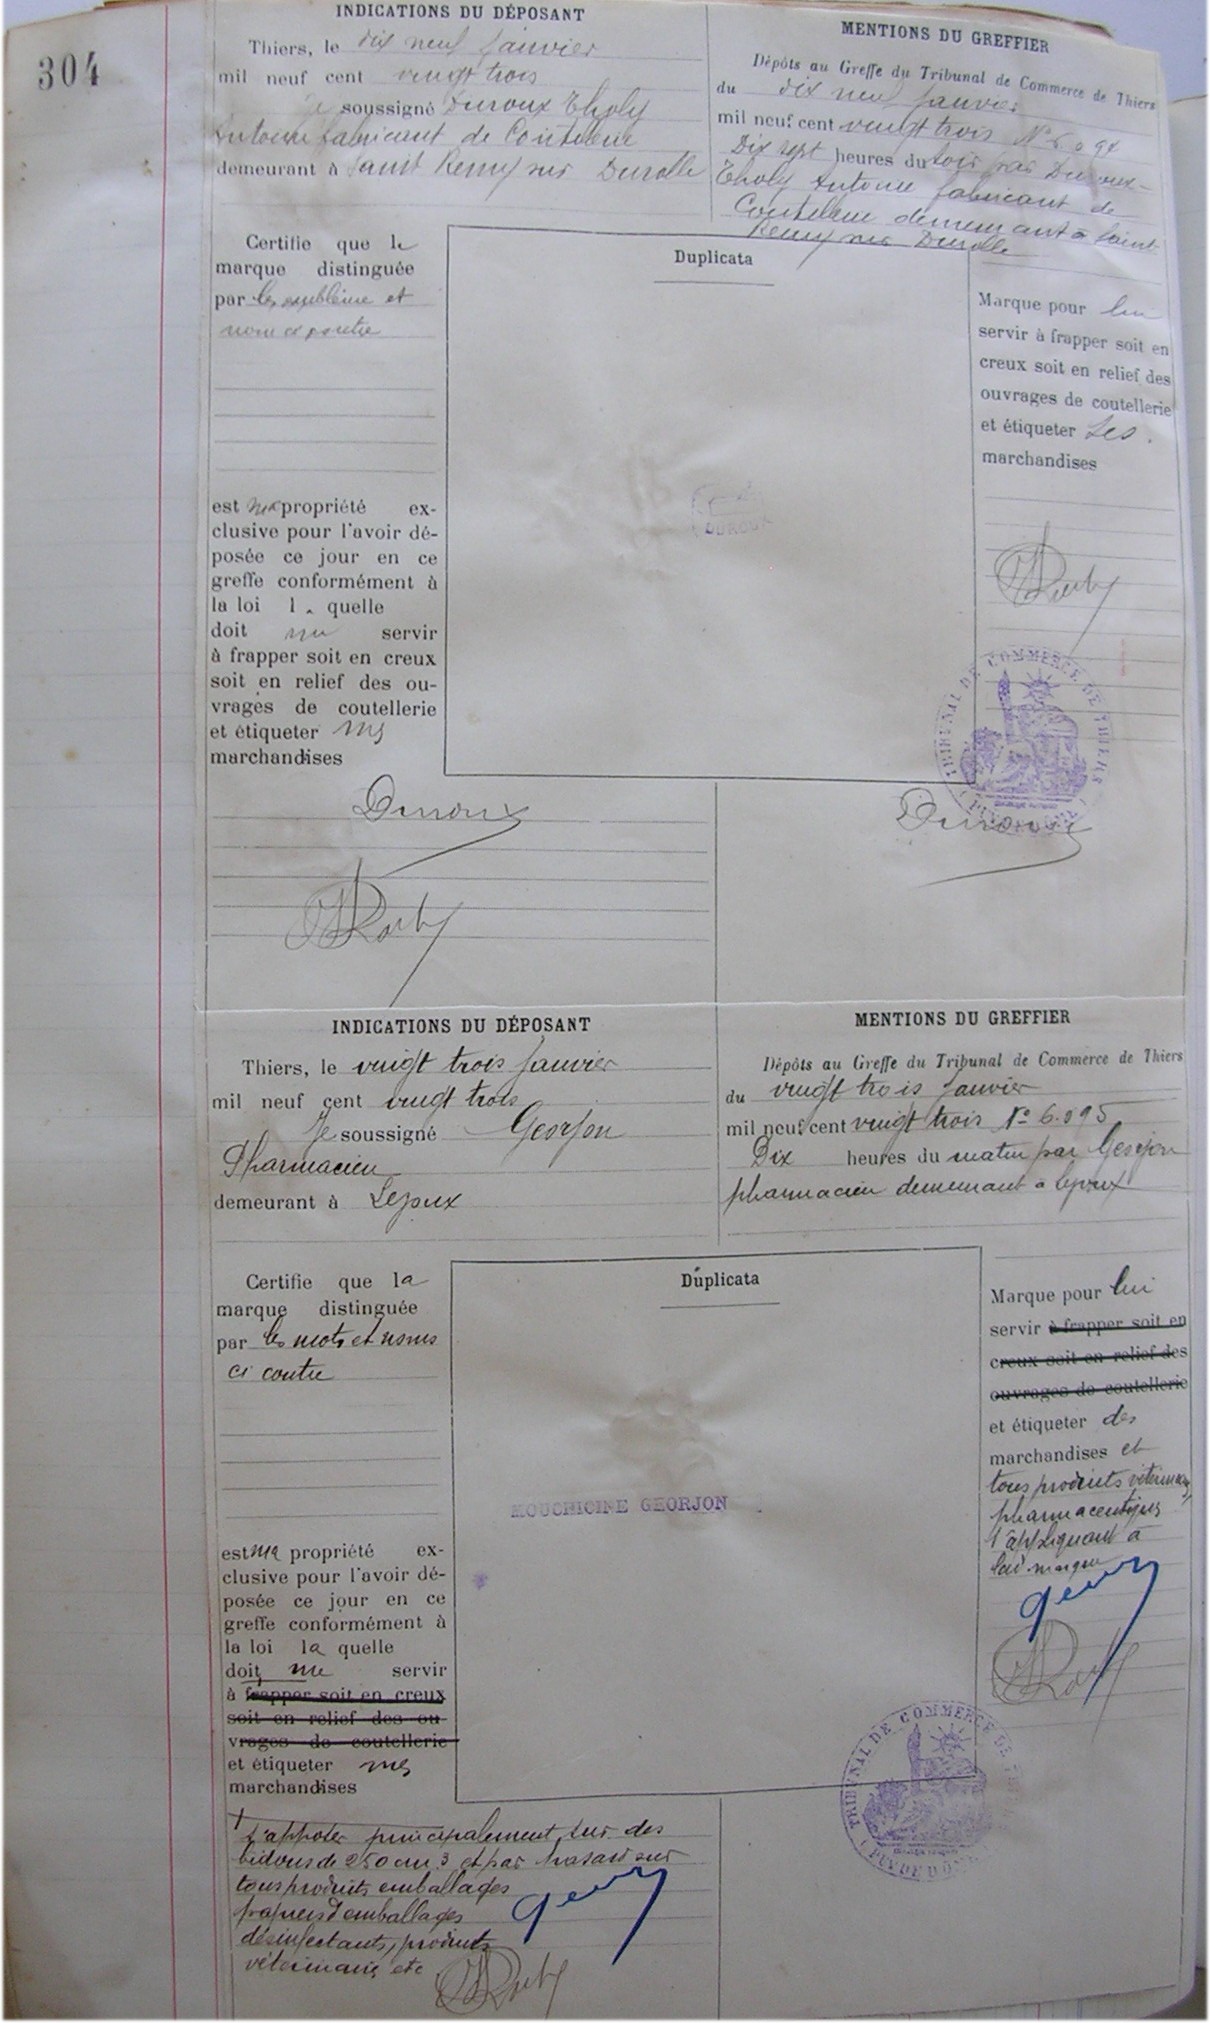 304
INDICATIONS DU DÉPOSANT
Thiers, le dix neuf janvier
mil neuf cent vingt trois
Je soussigné Duroux Tholy
Antoine fabricant de Coutellerie
demeurant à Saint Remy sur Durolle
MENTIONS DU GREFFIER
Dépôts au Greffe du Tribunal de Commerce de Thiers
du dix neuf janvier
mil neuf cent vingt trois No 6.094
Dix sept heures du soir par Duroux-
Tholy Antoine fabricant de
Coutellerie demeurant à Saint
Remy sur Durolle
Certifie que l
marque distinguée
par les emblème et
nom ci contre
est ma propriété ex-
clusive pour l'avoir dé-
posée ce jour en ce
greffe conformément à
la loi l quelle
doit me servir
à frapper soit en creux
soit en relief des ou-
vrages de coutellerie
et étiqueter mes
marchandises
Duplicata
DUROUX
Marque pour lui
servir à frapper soit en
creux soit en relief des
ouvrages de coutellerie
et étiqueter ses
marchandises
TRIBUNAL DE COMMERCE DE THIERS
(PUY-DE-DÔME)
Duroux
Duroux
INDICATIONS DU DÉPOSANT
Thiers, le vingt trois janvier
mil neuf cent vingt trois
Je soussigné Georjon
Pharmacien
demeurant à Lezoux
MENTIONS DU GREFFIER
Dépôts au Greffe du Tribunal de Commerce de Thiers
du vingt trois janvier
mil neuf cent vingt trois No 6.095
Dix heures du matin par Georjon
pharmacien demeurant à Lezoux
Certifie que la
marque distinguée
par les mots et noms
ci contre
est ma propriété ex-
clusive pour l'avoir dé-
posée ce jour en ce
greffe conformément à
la loi la quelle
doit me servir
à frapper soit en creux
soit en relief des ou-
vrages de coutellerie
et étiqueter mes
marchandises
Duplicata
MOUCHICINE GEORJON
Marque pour lui
servir à frapper soit en
creux soit en relief des
ouvrages de coutellerie
et étiqueter des
marchandises et
tous produits vétérinaires
pharmaceutiques
s'appliquant à
lad. marque
TRIBUNAL DE COMMERCE DE THIERS
(PUY DE DÔME)
s'apposer principalement sur des
bidons de 250 cm 3 et par hasard sur
tous produits emballages
papiers d'emballages
désinfectants, produits
vétérinaires etc